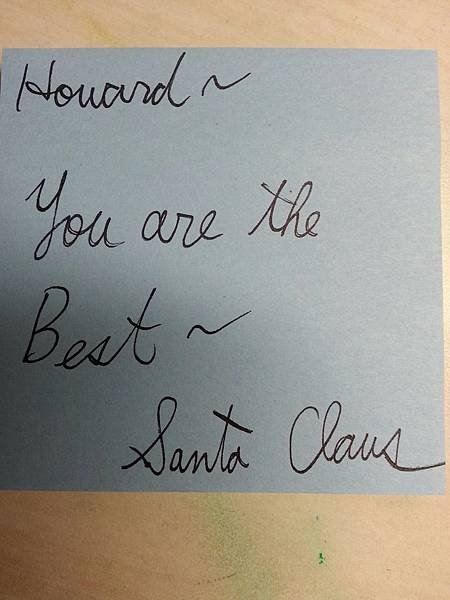 Howard ~
You are the
Best ~
Santa Claus